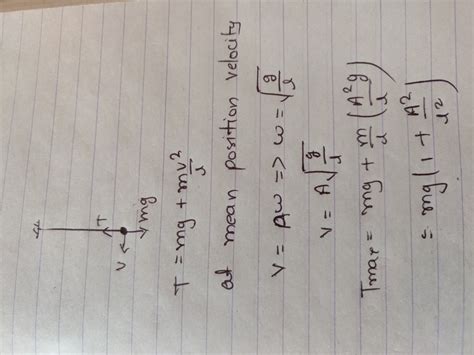 T
V
mg
T = mg + mv²/l
at mean position velocity
V = Aω => ω = √(g/l)
V = A√(g/l)
Tmax = mg + m/l (A²g/l)
= mg (1 + A²/l²)